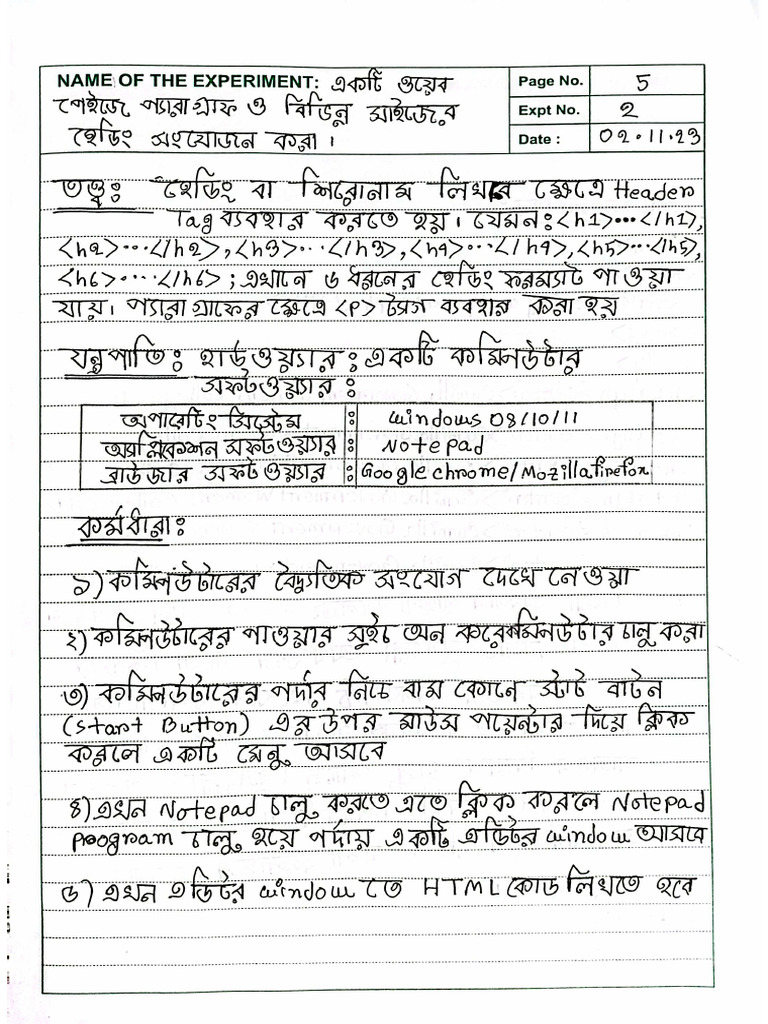 NAME OF THE EXPERIMENT: একটি ওয়েব
পেইজে প্যারাগ্রাফ ও বিভিন্ন সাইজের
হেডিং সংযোজন করা।
Page No. 5
Expt No. 2
Date : 02.11.23
তত্ত্ব: হেডিং বা শিরোনাম লিখার ক্ষেত্রে Header
Tag ব্যবহার করতে হয়। যেমন: <h1>...</h1>,
<h2>...</h2>, <h3>...</h3>, <h4>...</h4>, <h5>...</h5>,
<h6>...</h6>; এখানে ৬ ধরনের হেডিং ফরম্যাট পাওয়া
যায়। প্যারাগ্রাফের ক্ষেত্রে <P> ট্যাগ ব্যবহার করা হয়
যন্ত্রপাতি: হার্ডওয়্যার : একটি কম্পিউটার
সফটওয়্যার :
অপারেটিং সিস্টেম : windows 08/10/11
অ্যাপ্লিকেশন সফটওয়্যার : Notepad
ব্রাউজার সফটওয়্যার : Google chrome/Mozilla firefox
কর্মধারা:
১) কম্পিউটারের বৈদ্যুতিক সংযোগ দেখে নেওয়া
২) কম্পিউটারের পাওয়ার সুইচ অন করে কম্পিউটার চালু করা
৩) কম্পিউটারের পর্দার নিচে বাম কোনে স্টার্ট বাটন
(Start Button) এর উপর মাউস পয়েন্টার দিয়ে ক্লিক
করলে একটি মেনু আসবে
৪) এখন Notepad চালু করতে এতে ক্লিক করলে Notepad
program চালু হয়ে পর্দায় একটি এডিটর window আসবে
৫) এখন এডিটর window তে HTML কোড লিখতে হবে